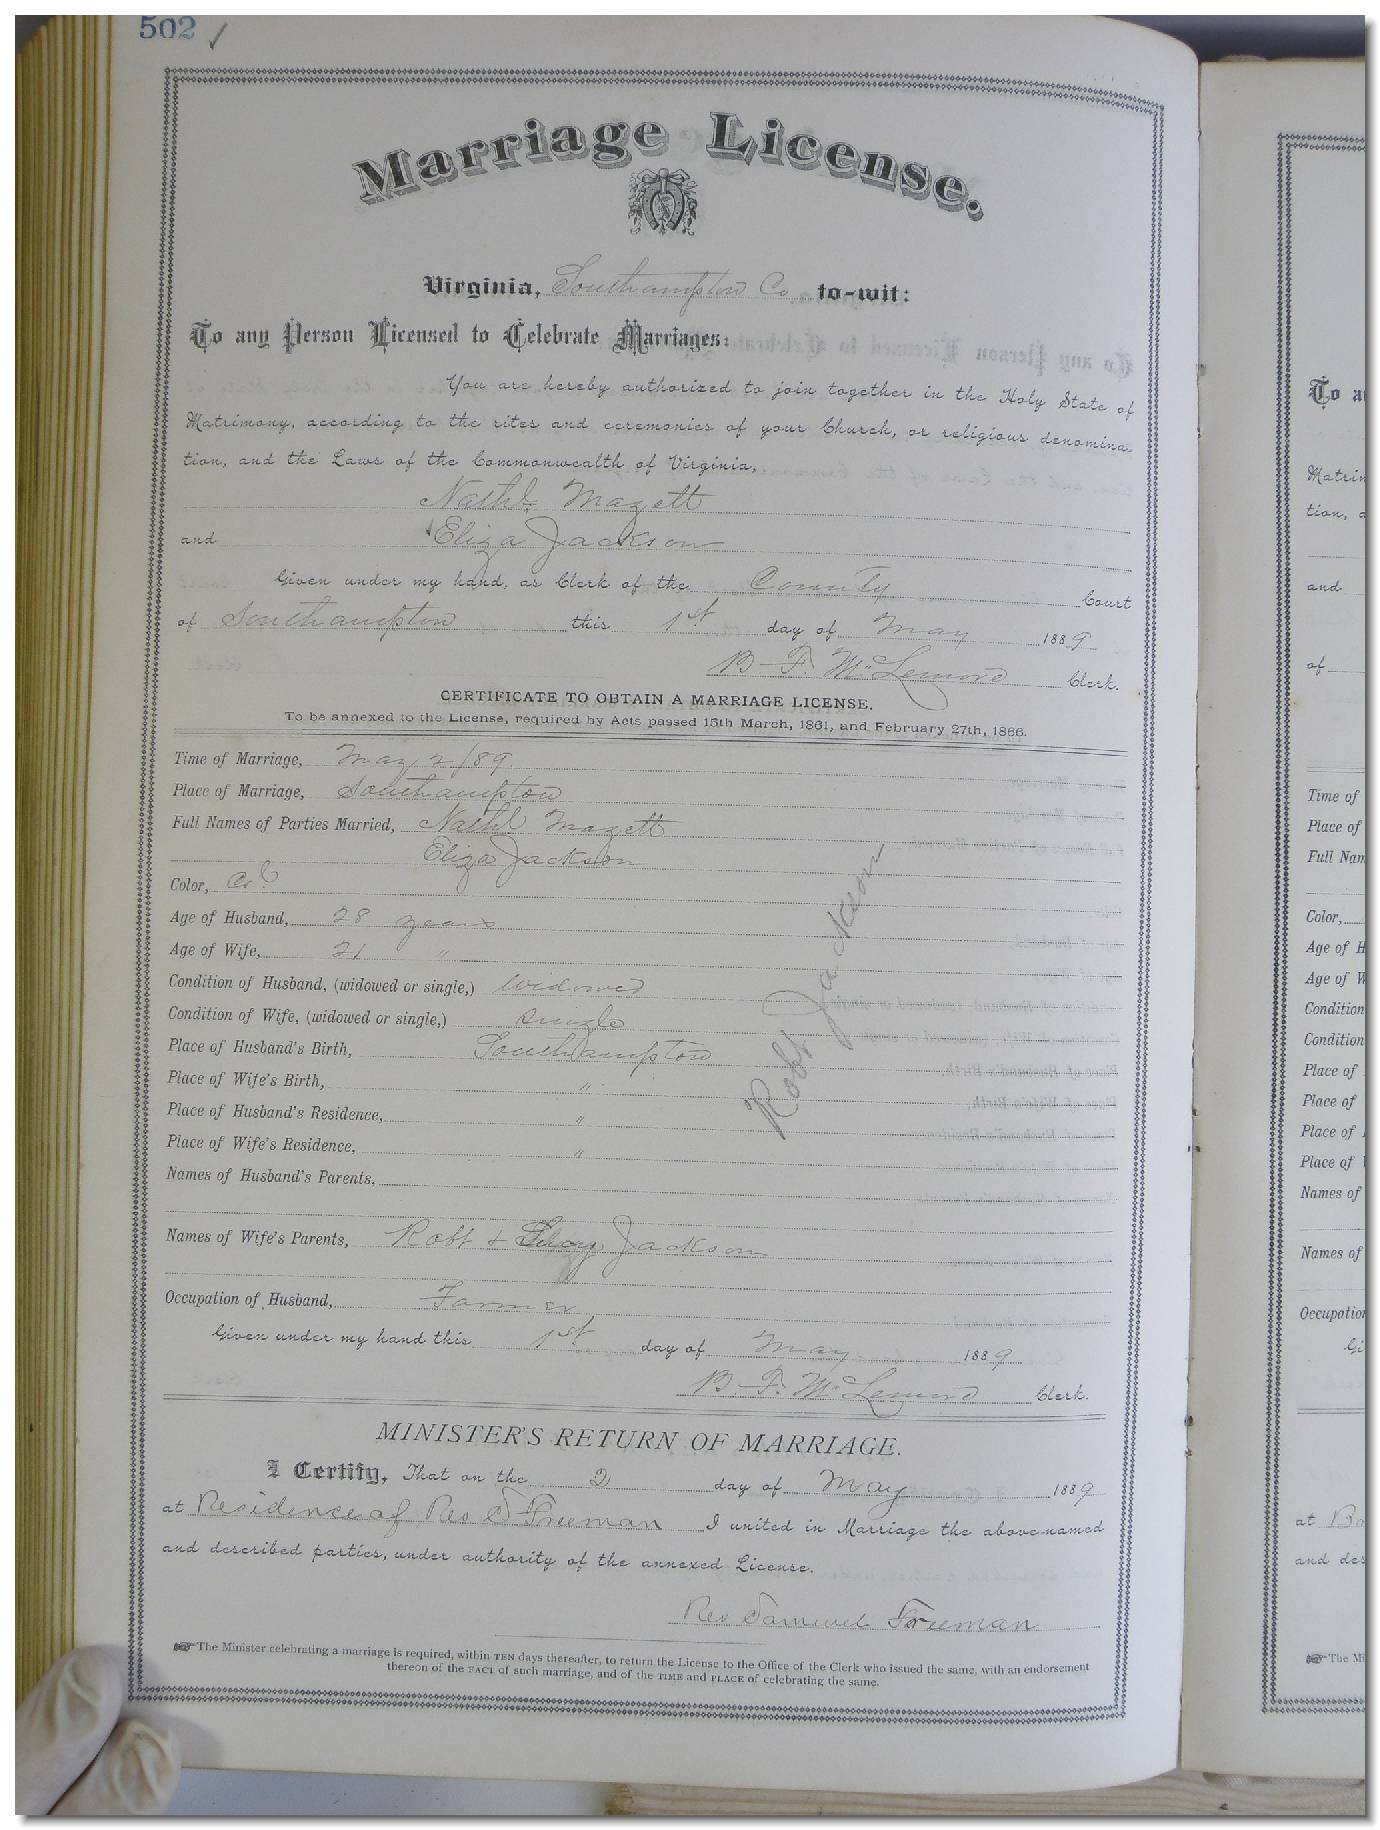 502 ✓
Marriage License.
Virginia, Southampton Co to-wit:
To any Person Licensed to Celebrate Marriages:
You are hereby authorized to join together in the Holy State of
Matrimony, according to the rites and ceremonies of your Church, or religious denomina-
tion, and the Laws of the Commonwealth of Virginia,
Nathl. Mazett
and Eliza Jackson
Given under my hand, as Clerk of the County Court
of Southampton this 1st day of May 1889
B. F. McLemore Clerk.
CERTIFICATE TO OBTAIN A MARRIAGE LICENSE.
To be annexed to the License, required by Acts passed 15th March, 1861, and February 27th, 1866.
Time of Marriage, May 2/89
Place of Marriage, Southampton
Full Names of Parties Married, Nathl Mazett
Eliza Jackson
Color, Cold
Age of Husband, 28 years
Age of Wife, 21 "
Condition of Husband, (widowed or single,) widowed
Condition of Wife, (widowed or single,) single
Place of Husband's Birth, Southampton
Place of Wife's Birth, "
Place of Husband's Residence, "
Place of Wife's Residence, "
Names of Husband's Parents,
Names of Wife's Parents, Robt & Jackson
Robt Jackson
Occupation of Husband, Farmer
Given under my hand this 1st day of May 1889
B. F. McLemore Clerk.
MINISTER'S RETURN OF MARRIAGE.
I Certify, That on the 2 day of May 1889
at Residence of Rev S Freeman I united in Marriage the above-named
and described parties, under authority of the annexed License.
Rev Samuel Freeman
☞ The Minister celebrating a marriage is required, within TEN days thereafter, to return the License to the Office of the Clerk who issued the same, with an endorsement
thereon of the FACT of such marriage, and of the TIME and PLACE of celebrating the same.
To a
Matrim
tion, a
and
of
Time of
Place of
Full Nam
Color,
Age of H
Age of W
Condition
Condition
Place of
Place of
Place of
Place of
Names of
Names of
Occupation
Gi
at Bo
and des
☞ The Mi